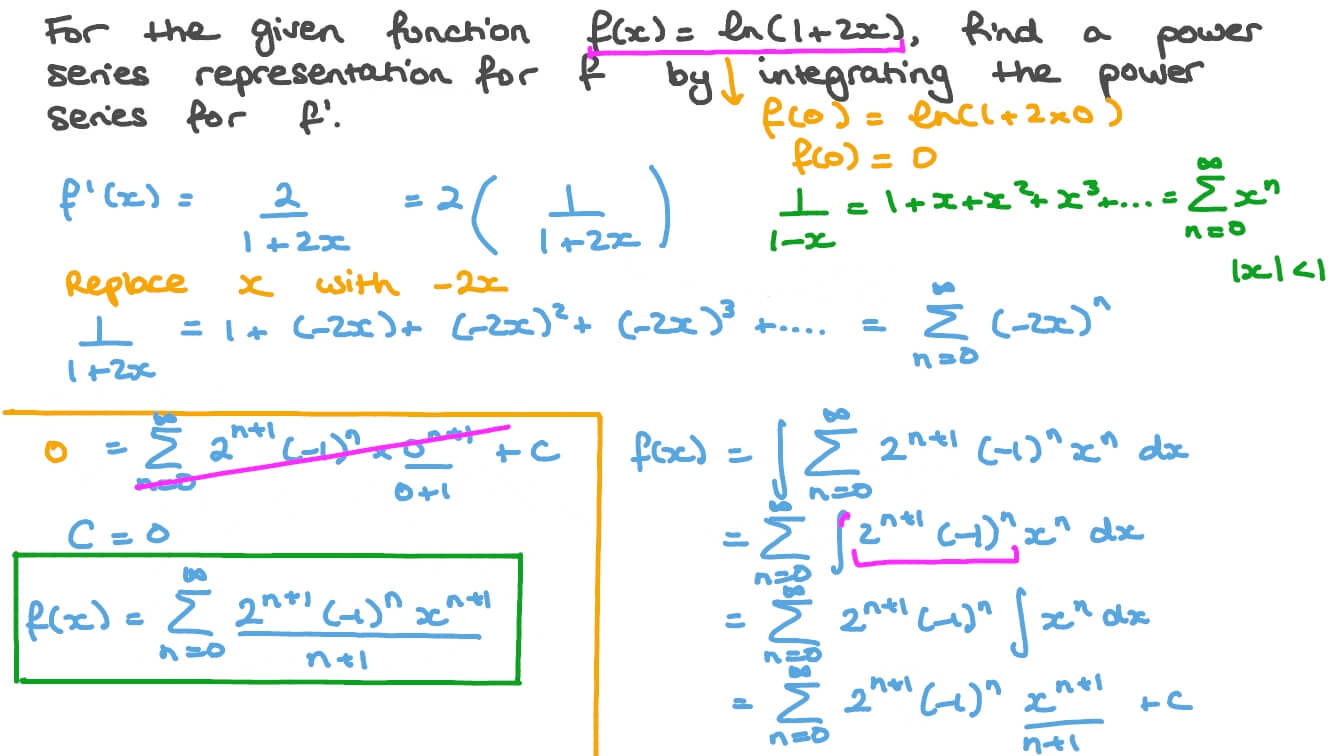 For the given function f(x) = ln(1+2x), find a power
series representation for f by integrating the power
series for f'.
f(0) = ln(1+2×0)
f(0) = 0
f'(x) = 2/(1+2x) = 2(1/(1+2x))
1/(1-x) = 1+x+x²+x³+... = ∑_{n=0}^{∞} xⁿ
|x|<1
Replace x with -2x
1/(1+2x) = 1+(-2x)+(-2x)²+(-2x)³+.... = ∑_{n=0}^{∞} (-2x)ⁿ
0 = ∑_{n=0}^{∞} 2^{n+1} (-1)ⁿ × 0^{n+1}/(0+1) + C
C = 0
f(x) = ∑_{n=0}^{∞} 2^{n+1} (-1)ⁿ x^{n+1}/(n+1)
f(x) = ∫ ∑_{n=0}^{∞} 2^{n+1} (-1)ⁿ xⁿ dx
= ∑_{n=0}^{∞} ∫ 2^{n+1} (-1)ⁿ xⁿ dx
= ∑_{n=0}^{∞} 2^{n+1} (-1)ⁿ ∫ xⁿ dx
= ∑_{n=0}^{∞} 2^{n+1} (-1)ⁿ x^{n+1}/(n+1) + C